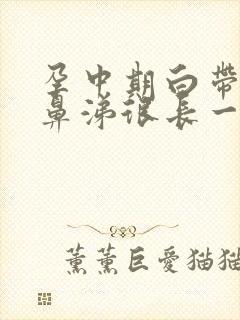 孕中期白帶
鼻涕很長一
薰薰巨愛猫猫